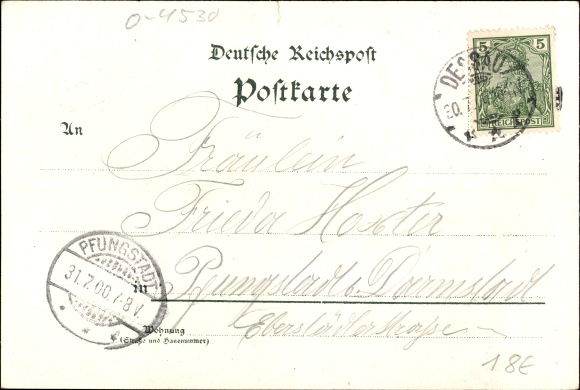 0-4530
Deutsche Reichspost
Postkarte
5 5
REICHSPOST
DESSAU
30.7.
An
Fräulein
Frieda Hoxter
Pfungstadt b. Darmstadt
in
Eberstädterstrasse
Wohnung
(Straße und Hausnummer)
PFUNGSTADT
31.7.00.7-8V.
18€